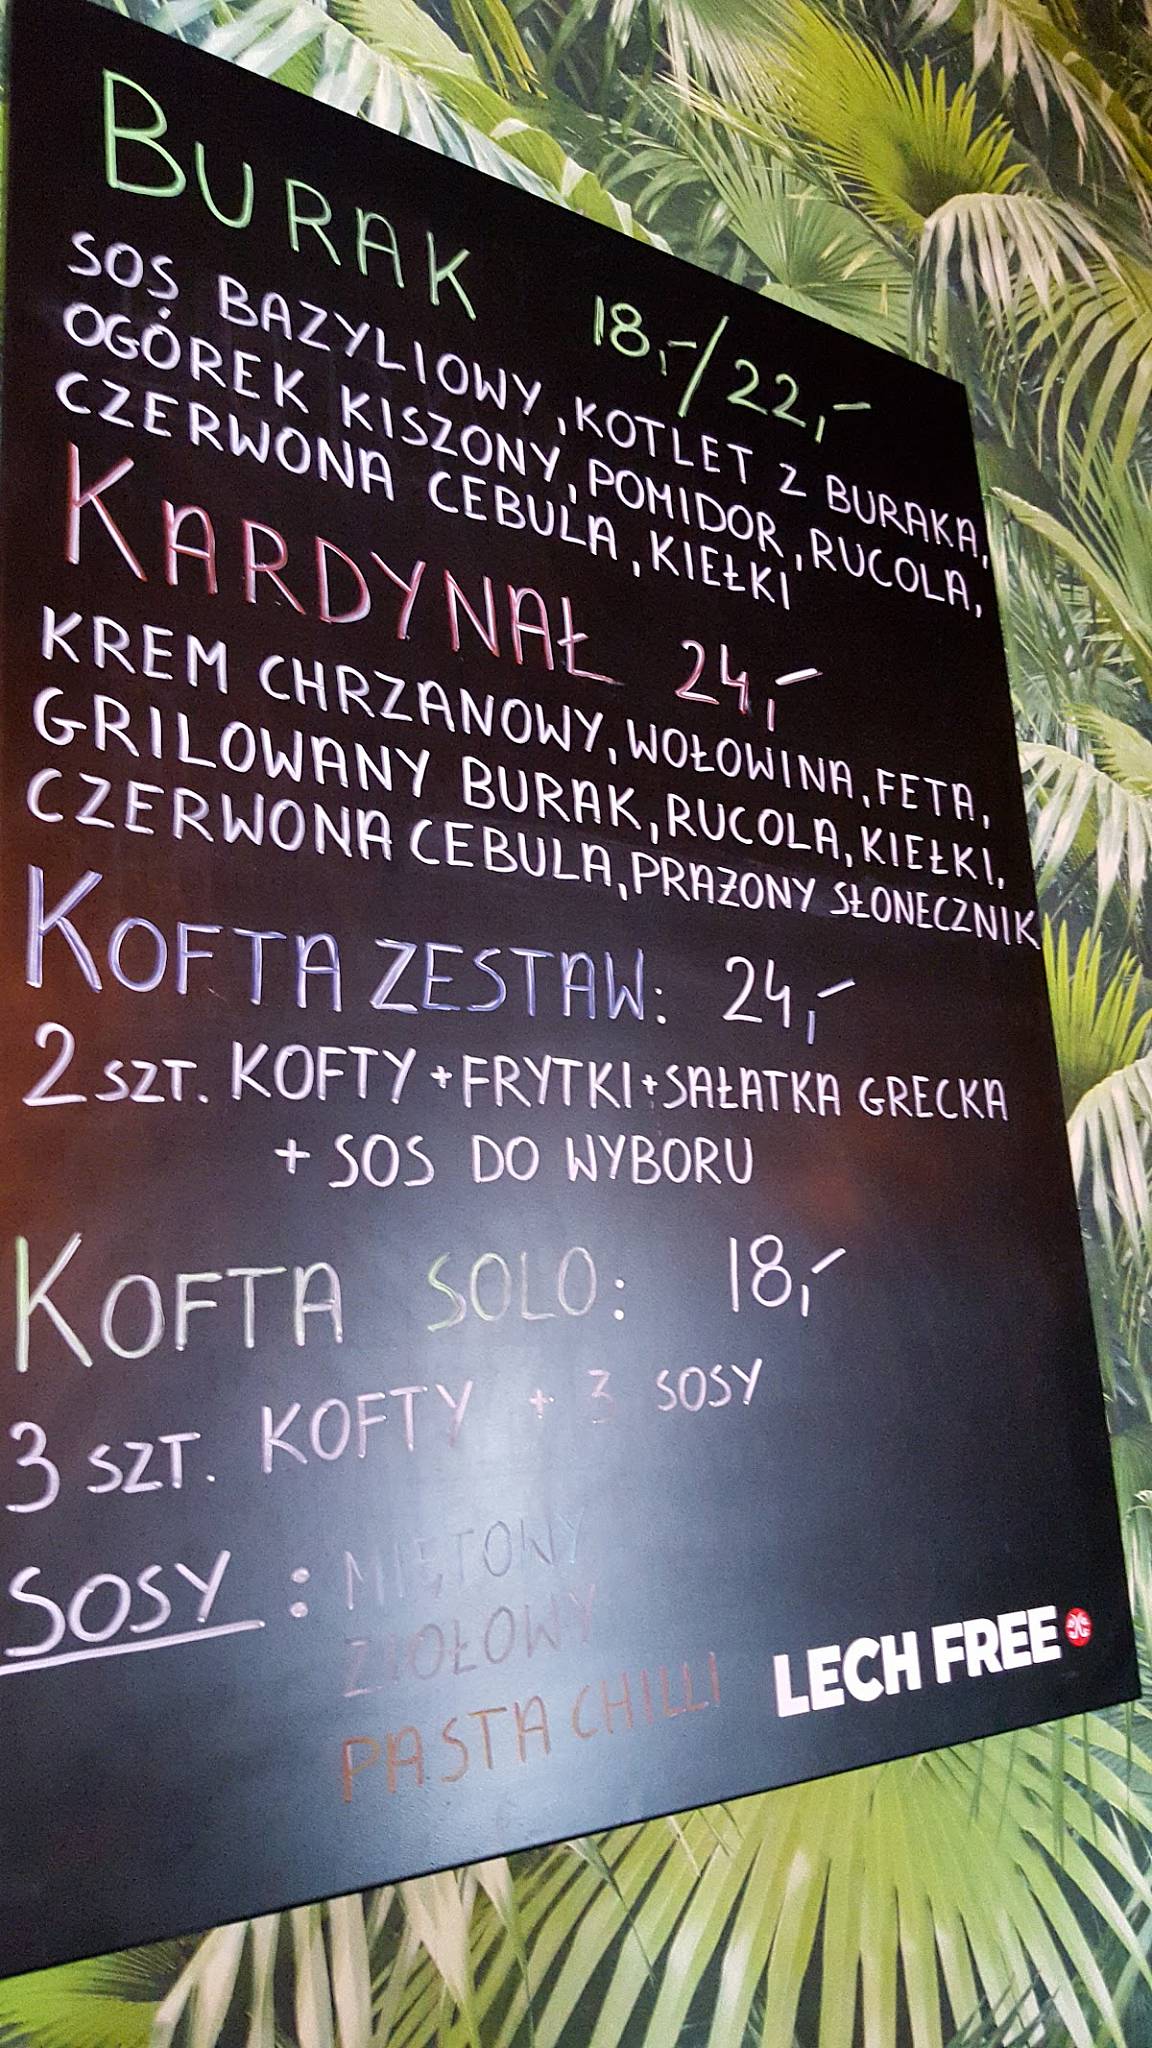 BURAK 18,-/22,-
SOS BAZYLIOWY, KOTLET Z BURAKA,
OGÓREK KISZONY, POMIDOR, RUCOLA,
CZERWONA CEBULA, KIEŁKI
KARDYNAŁ 24,-
KREM CHRZANOWY, WOŁOWINA, FETA,
GRILOWANY BURAK, RUCOLA, KIEŁKI,
CZERWONA CEBULA, PRAŻONY SŁONECZNIK
KOFTA ZESTAW: 24,-
2 SZT. KOFTY + FRYTKI + SAŁATKA GRECKA
+ SOS DO WYBORU
KOFTA SOLO: 18,-
3 SZT. KOFTY + 3 SOSY
SOSY: MIĘTOWY
ZIOŁOWY
PASTA CHILLI
LECH FREE